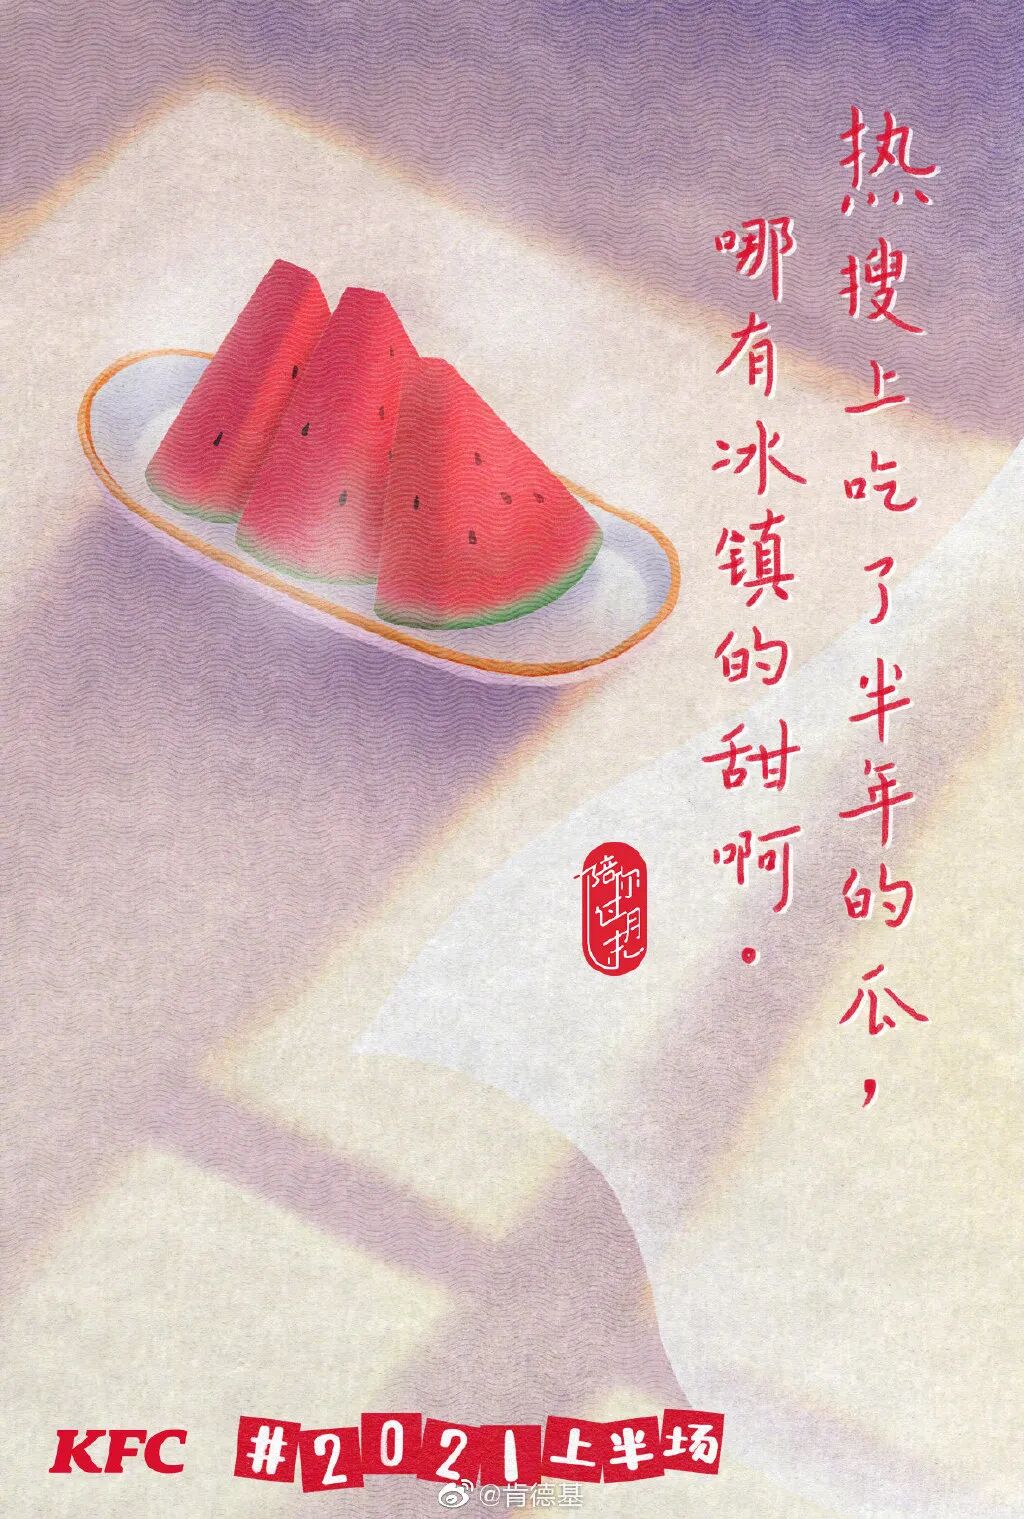 热搜上吃了半年的瓜，
哪有冰镇的甜啊.
KFC
#2021上半场
@肯德基